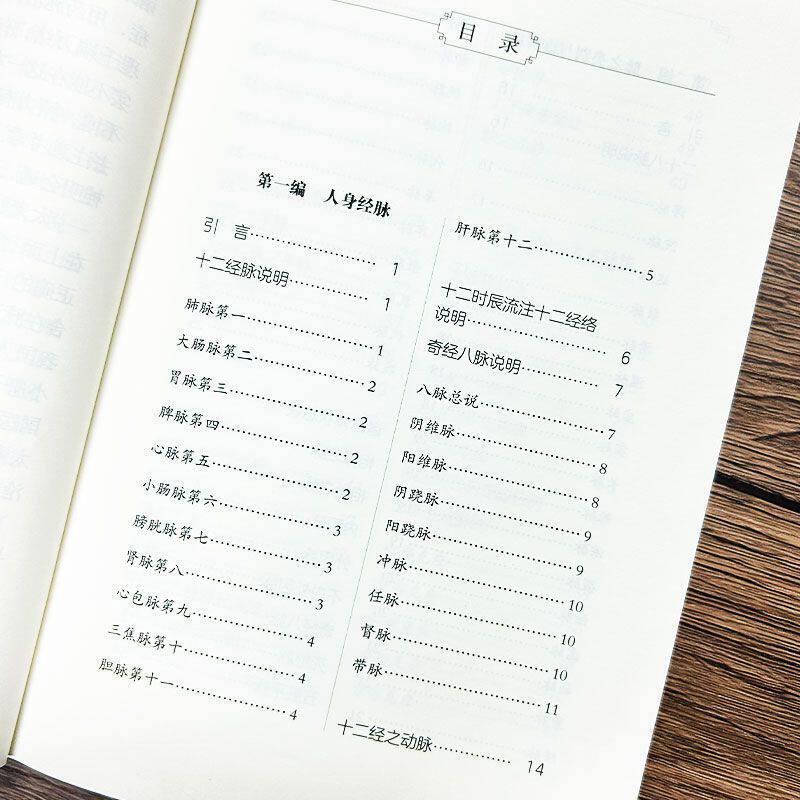 目 录
第一编 人身经脉
引 言…………………… 1
十二经脉说明…………… 1
肺脉第一………………… 1
大肠脉第二……………… 2
胃脉第三………………… 2
脾脉第四………………… 2
心脉第五………………… 2
小肠脉第六……………… 3
膀胱脉第七……………… 3
肾脉第八………………… 3
心包脉第九……………… 4
三焦脉第十……………… 4
胆脉第十一……………… 4
肝脉第十二……………… 5
十二时辰流注十二经络
说明……………………… 6
奇经八脉说明…………… 7
八脉总说………………… 7
阴维脉…………………… 8
阳维脉…………………… 8
阴跷脉…………………… 9
阳跷脉…………………… 9
冲脉……………………… 10
任脉……………………… 10
督脉……………………… 10
带脉……………………… 11
十二经之动脉…………… 14